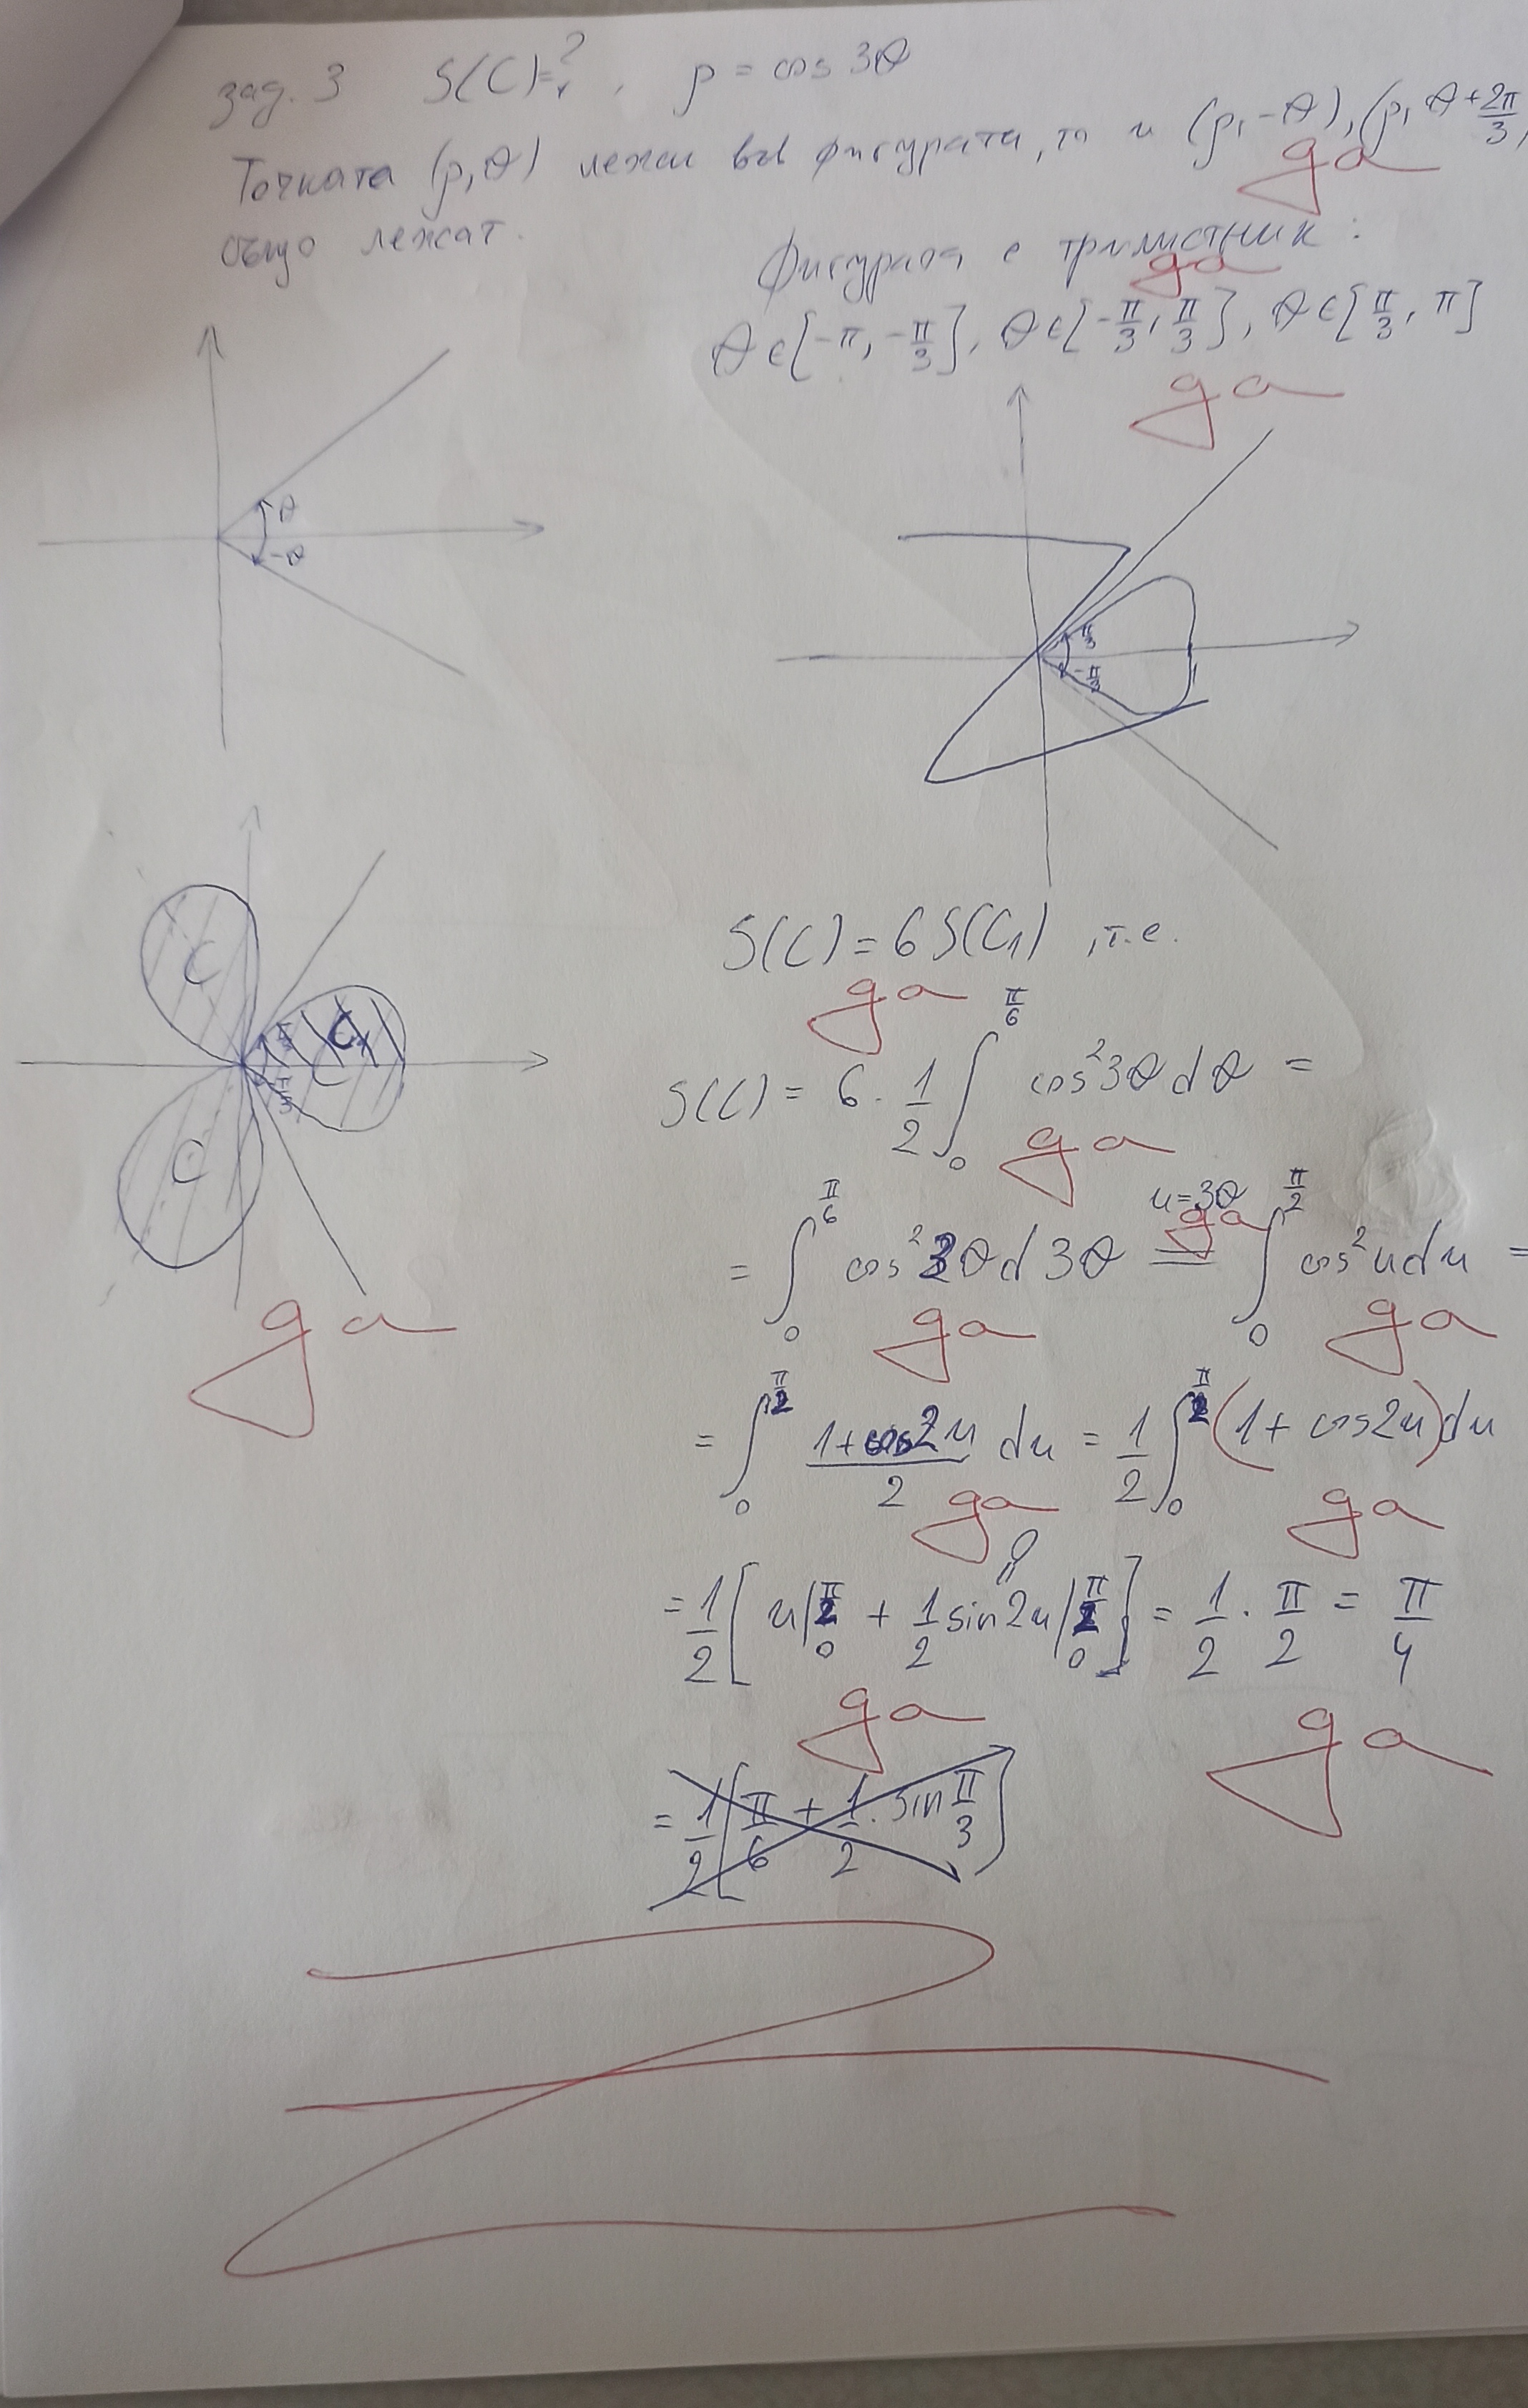 зад. 3 S(C)=? , ρ = cos 3θ
Точката (ρ, θ) лежи във фигурата, то и (ρ, -θ), (ρ, θ + 2π/3)
да
също лежат.
Фигурата е трилистник:
да
θ ∈ [-π, -π/3], θ ∈ [-π/3, π/3], θ ∈ [π/3, π]
да
θ
-θ
π/3
-π/3
C
C₁
C
π/3
C
да
S(C) = 6 S(C₁) , т.е.
да
S(C) = 6 · 1/2 ∫₀^{π/6} cos² 3θ dθ =
да
= ∫₀^{π/6} cos² 3θ d 3θ = (u=3θ) ∫₀^{π/2} cos² u du =
да
да
да
= ∫₀^{π/2} (1+cos2u)/2 du = 1/2 ∫₀^{π/2} (1 + cos2u) du
да
да
= 1/2 [ u |₀^{π/2} + 1/2 sin 2u |₀^{π/2} ] = 1/2 · π/2 = π/4
0
да
да
= 1/2 [ π/6 + 1/2 · sin π/3 ]